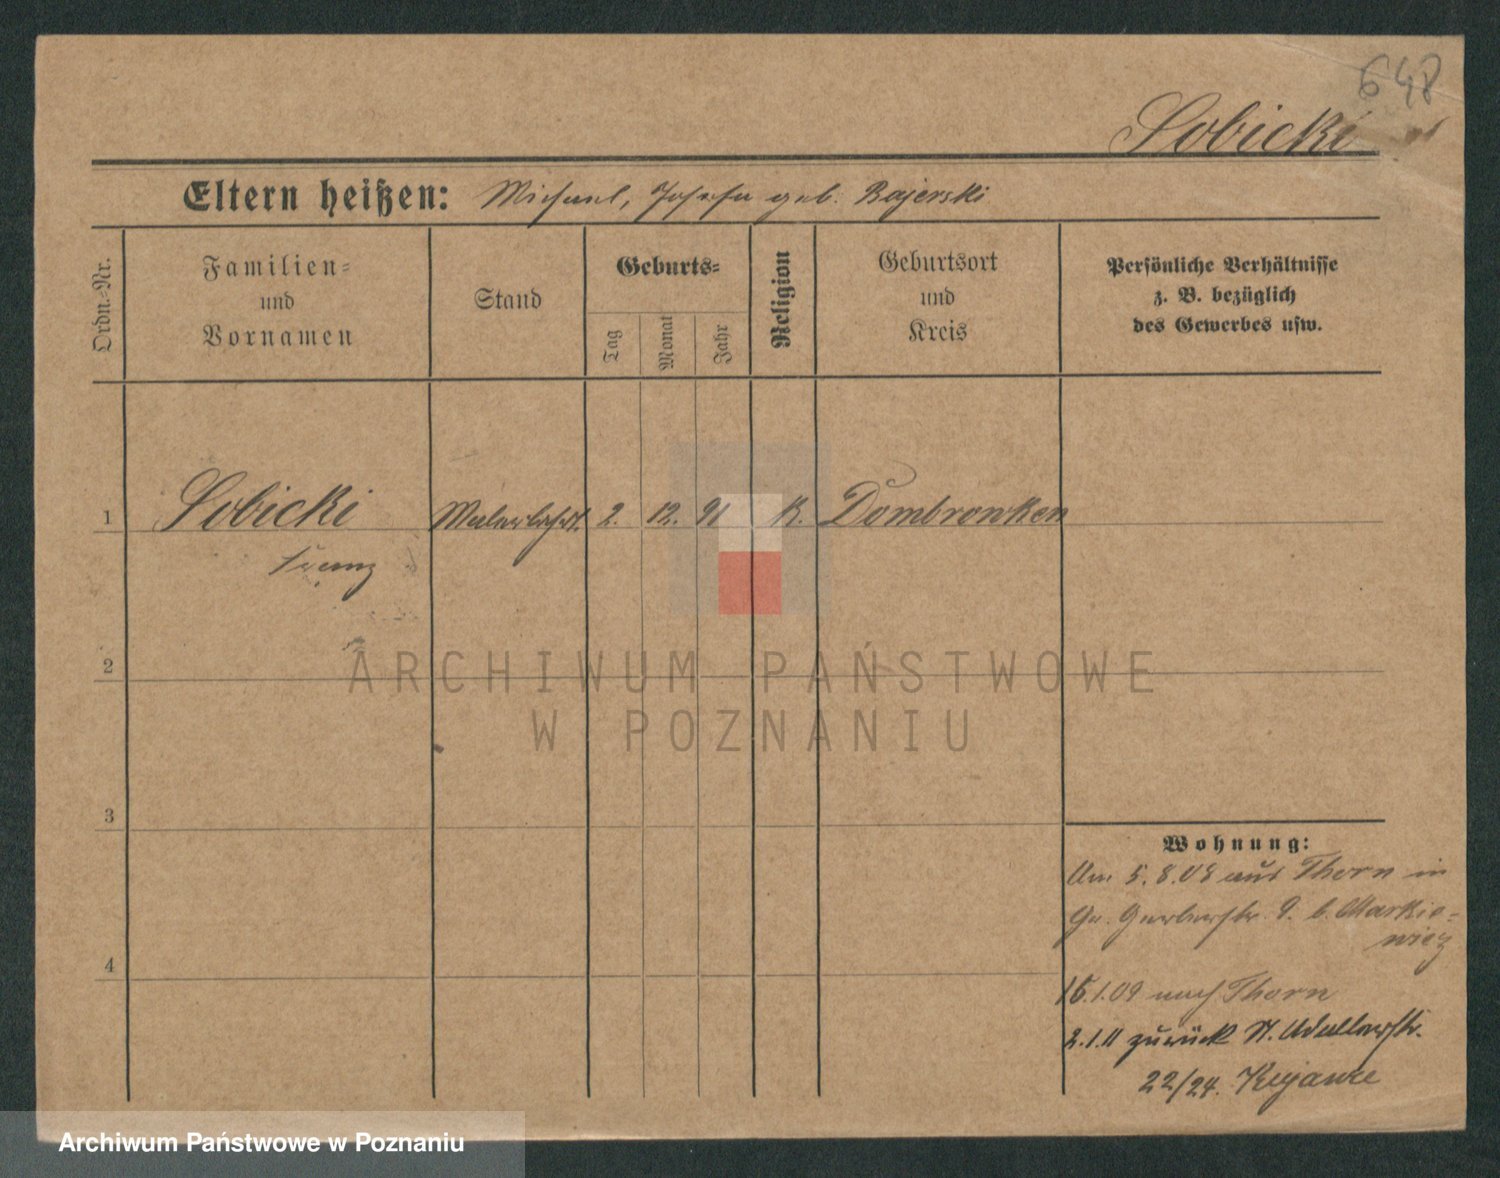 648
Sobicki
Eltern heißen: Michael, Josefa geb. Bajerski
Ordn.-Nr.
Familien-
und
Vornamen
Stand
Geburts-
Tag
Monat
Jahr
Religion
Geburtsort
und
Kreis
Persönliche Verhältnisse
z. B. bezüglich
des Gewerbes usw.
1 Sobicki Malerlehrl. 2. 12. 91 K. Dombrowken
Franz
2
ARCHIWUM PAŃSTWOWE
W POZNANIU
3
Wohnung:
Am 5.8.08 aus Thorn in
Gr. Gerberstr. 9. b. Markie-
wicz
4
15.1.09 nach Thorn
2.1.11 zurück St. Adalbertstr.
22/24. Kujawa
Archiwum Państwowe w Poznaniu